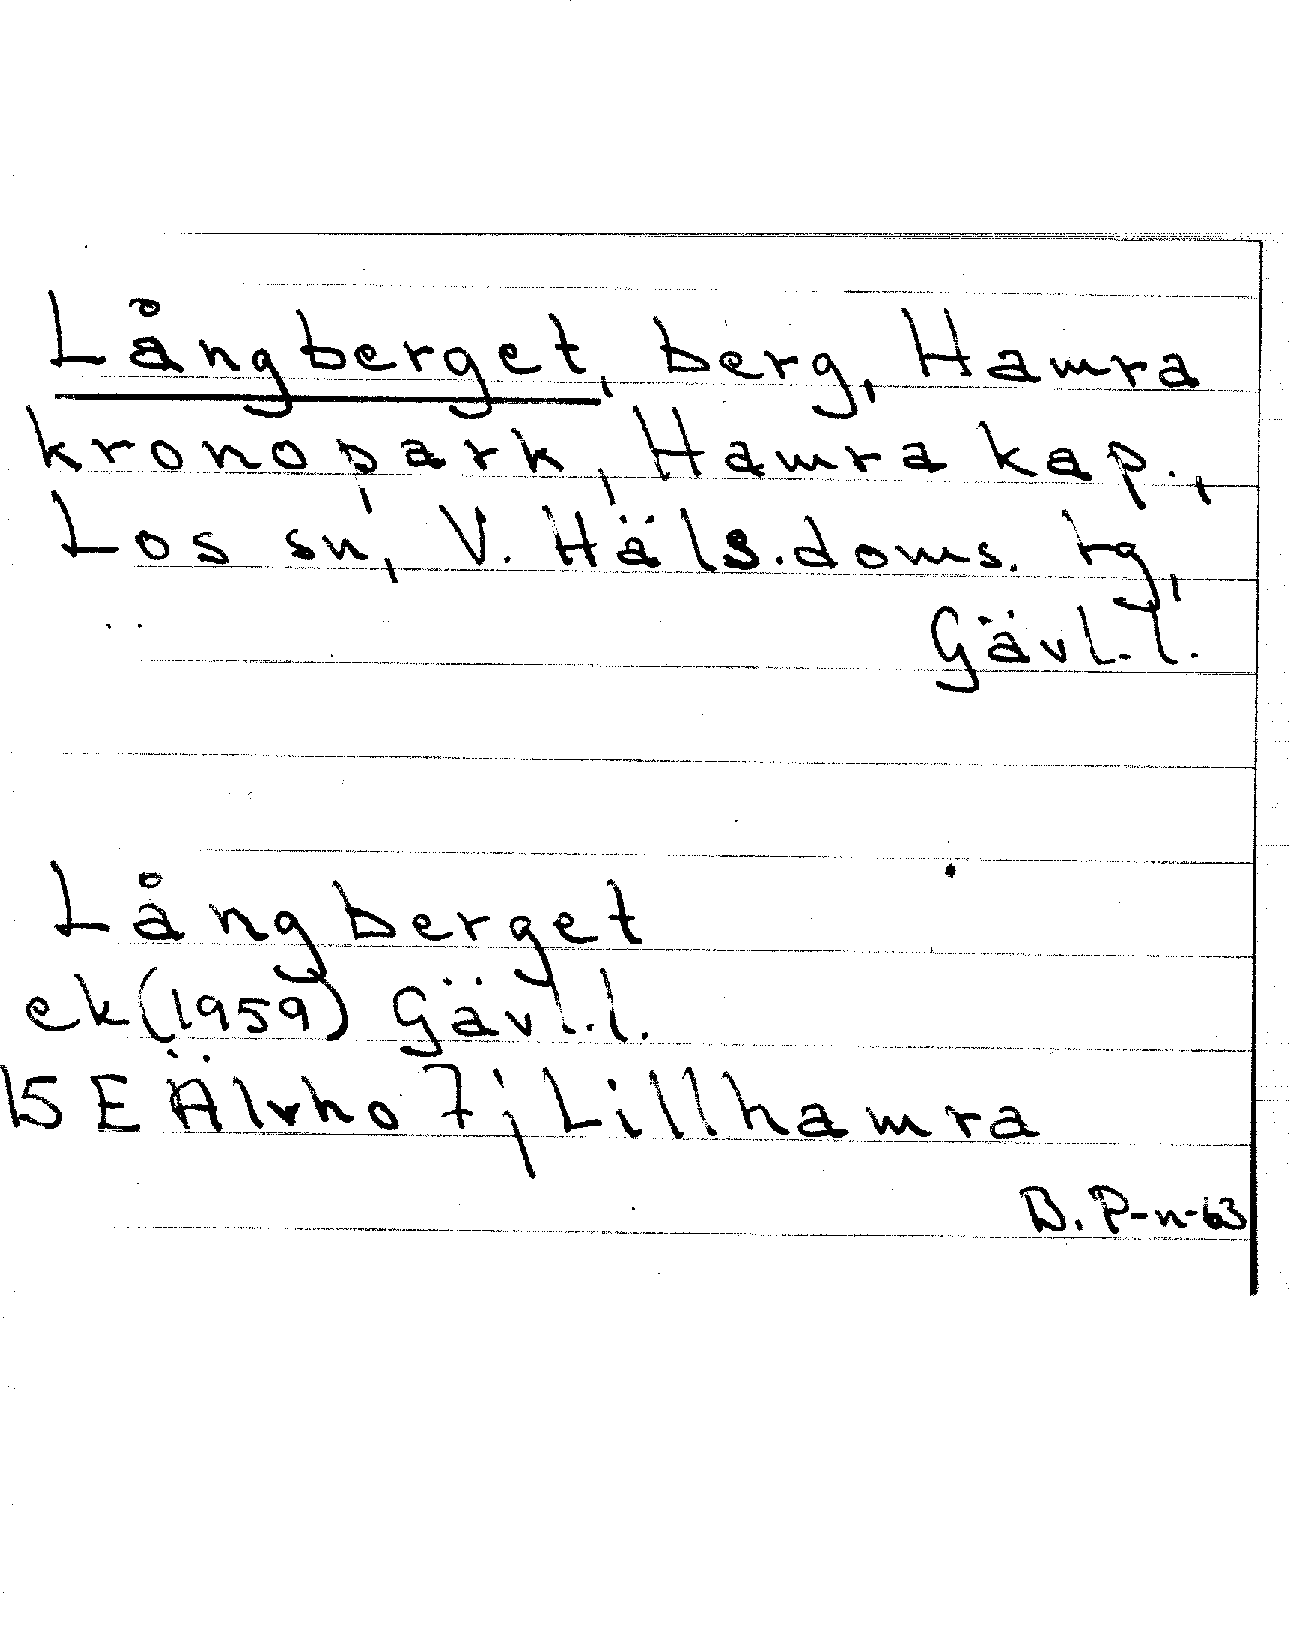 Långberget, berg, Hamra
kronopark, Hamra kap.,
Los sn, V. Häls. doms. tg,
Gävl. l.
Långberget
ek (1959) Gävl. l.
15 E Älvho 7 i; Lillhamra
B. P-n-63